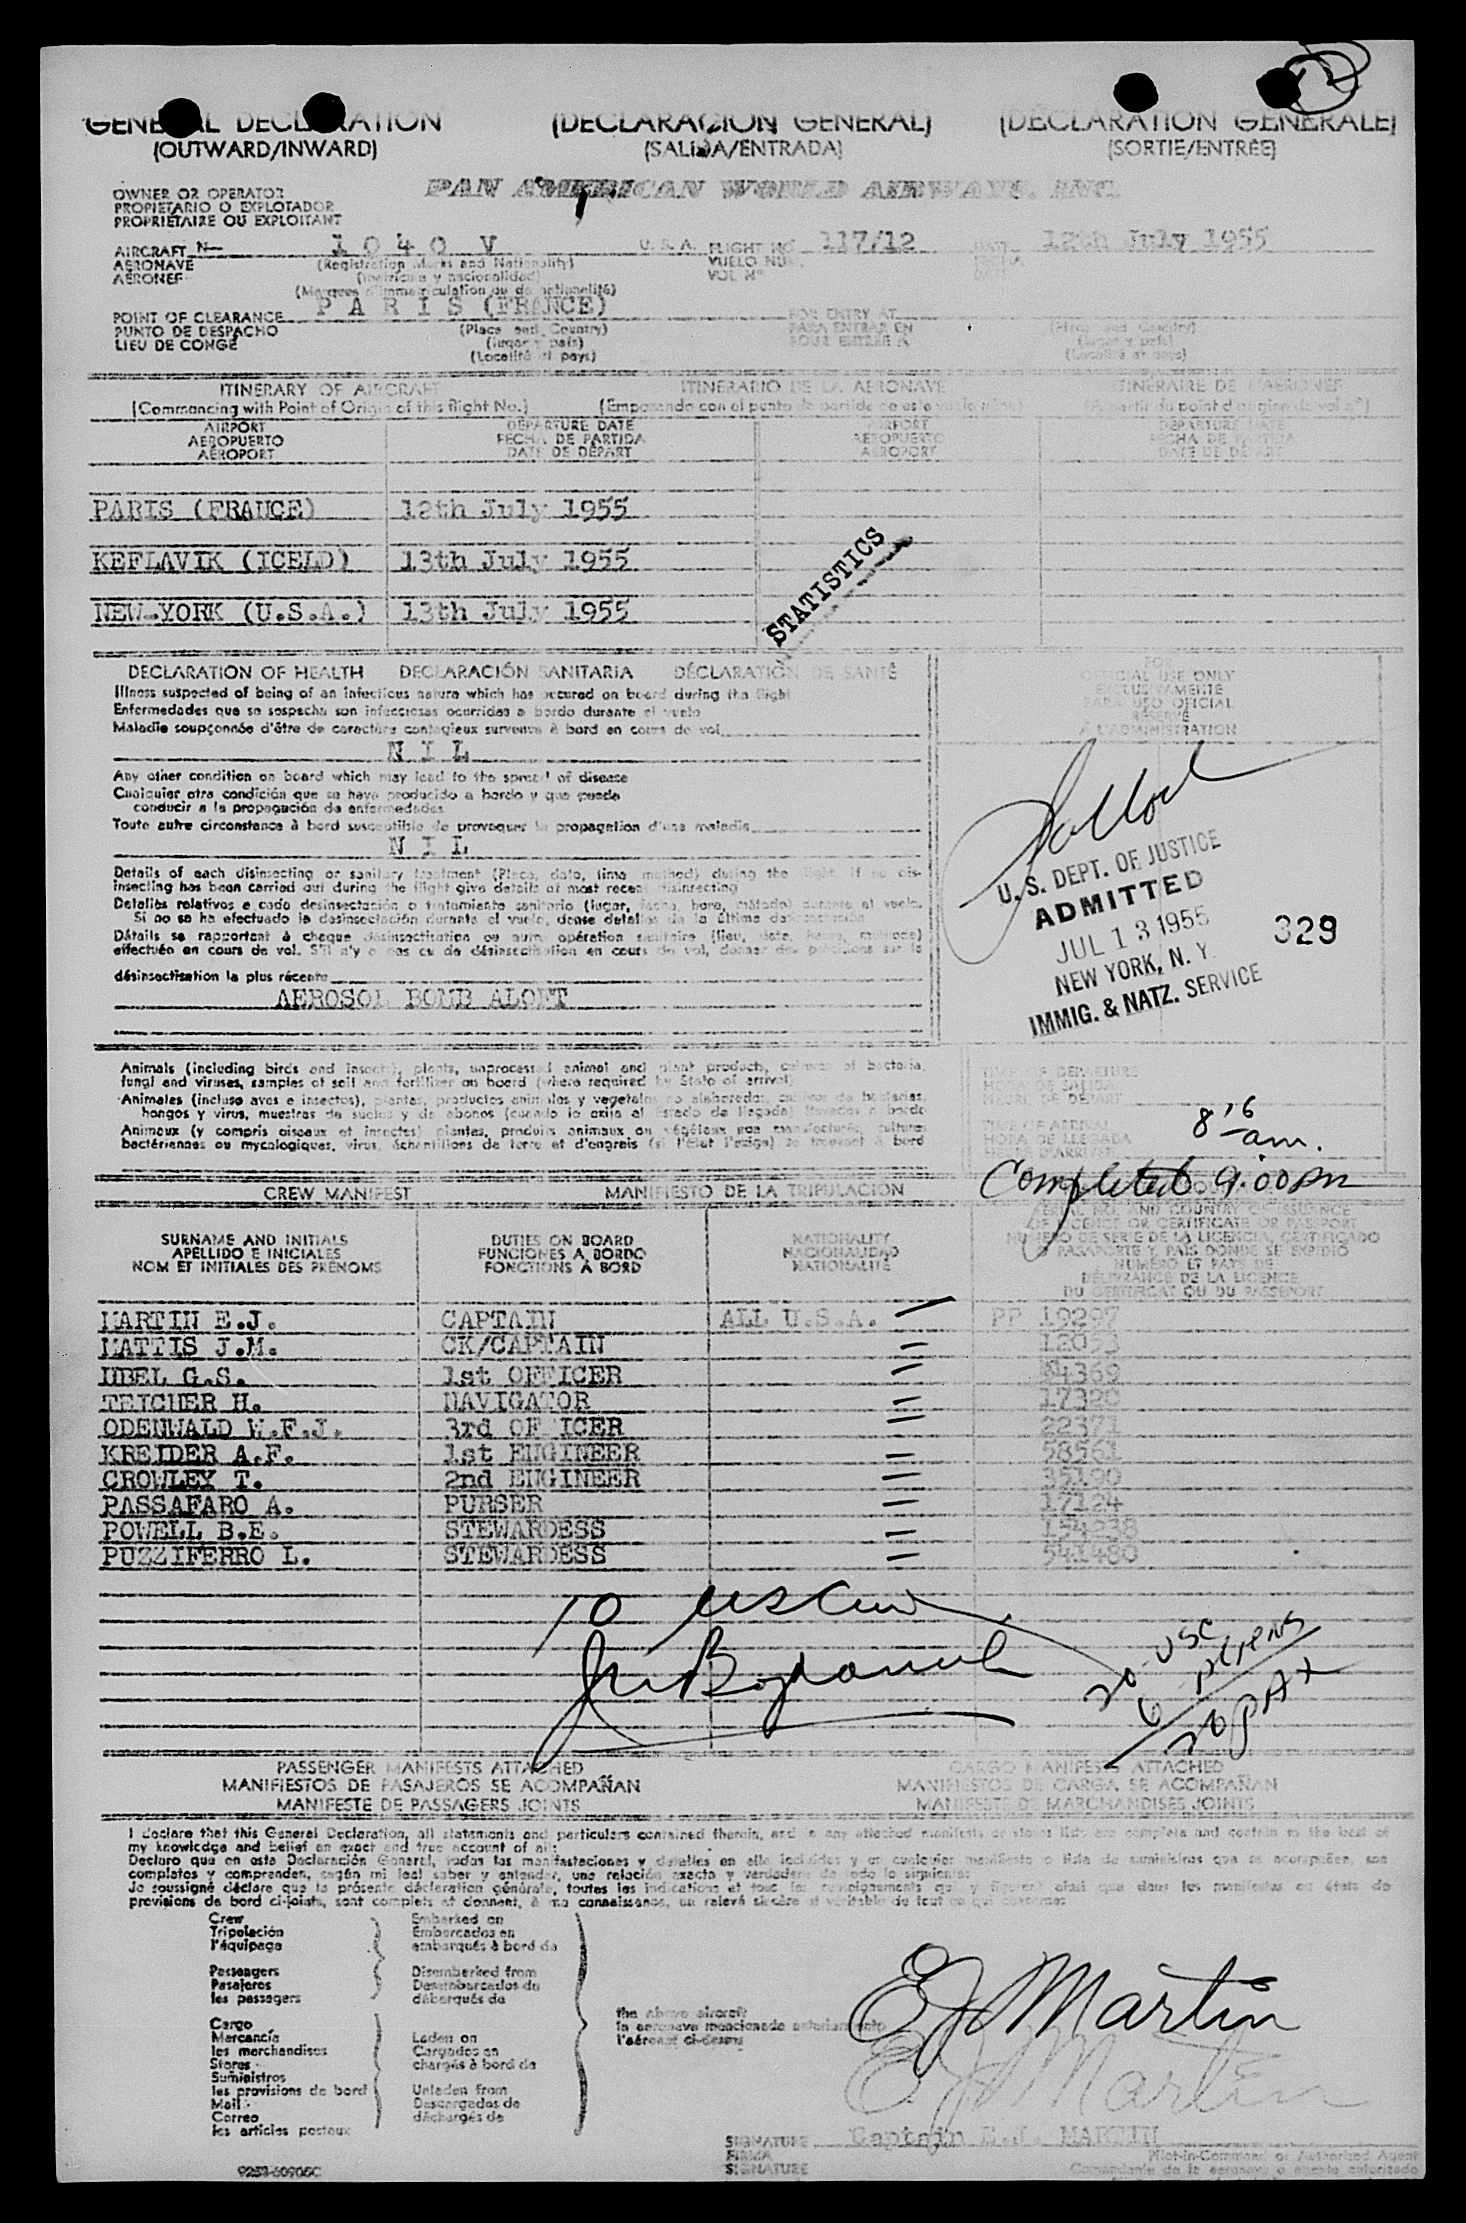 GENERAL DECLARATION (DECLARACIÓN GENERAL) (DÉCLARATION GÉNÉRALE)
(OUTWARD/INWARD) (SALIDA/ENTRADA) (SORTIE/ENTRÉE)
OWNER OR OPERATOR PAN AMERICAN WORLD AIRWAYS. INC.
PROPIETARIO O EXPLOTADOR
PROPRIÉTAIRE OU EXPLOITANT
AIRCRAFT N 1 0 4 0 V U.S.A. FLIGHT NO 117/12 DATE 12th July 1955
AERONAVE (Registration Marks and Nationality) VUELO NUM. FECHA
AÉRONEF (matrícula y nacionalidad) VOL Nº DATE
(Marques d'immatriculation ou de nationalité)
POINT OF CLEARANCE P A R I S (FRANCE) FOR ENTRY AT
PUNTO DE DESPACHO (Place and Country) PARA ENTRAR EN (Place and Country)
LIEU DE CONGÉ (lugar y país) POUR ENTRÉE À (lugar y país)
(Localité et pays) (Localité et pays)
ITINERARY OF AIRCRAFT ITINERARIO DE LA AERONAVE ITINÉRAIRE DE L'AÉRONEF
(Commencing with Point of Origin of this flight No.) (Empezando con el punto de partida de este vuelo núm.) (À partir du point d'origine du vol nº)
AIRPORT DEPARTURE DATE AIRPORT DEPARTURE DATE
AEROPUERTO FECHA DE PARTIDA AEROPUERTO FECHA DE PARTIDA
AÉROPORT DATE DE DÉPART AÉROPORT DATE DE DÉPART
PARIS (FRANCE) 12th July 1955
KEFLAVIK (ICELD) 13th July 1955
NEW-YORK (U.S.A.) 13th July 1955
STATISTICS
DECLARATION OF HEALTH DECLARACIÓN SANITARIA DÉCLARATION DE SANTÉ
FOR OFFICIAL USE ONLY
EXCLUSIVAMENTE
PARA USO OFICIAL
RÉSERVÉ
À L'ADMINISTRATION
Illness suspected of being of an infectious nature which has occured on board during the flight
Enfermedades que se sospecha son infecciosas ocurridas a bordo durante el vuelo
Maladie soupçonnée d'être de caractère contagieux survenue à bord en cours de vol
N I L
Any other condition on board which may lead to the spread of disease
Cualquier otra condición que se haya producido a bordo y que pueda
conducir a la propagación de enfermedades
Toute autre circonstance à bord susceptible de provoquer la propagation d'une maladie
N I L
Details of each disinsecting or sanitary treatment (Place, date, time method) during the flight. If no dis-
insecting has been carried out during the flight give details of most recent disinsecting
Detalles relativos a cada desinsectación o tratamiento sanitario (lugar, fecha, hora, método) durante el vuelo.
Si no se ha efectuado la desinsectación durante el vuelo, dense detalles de la última desinsectación
Détails se rapportant à chaque désinsectisation ou autre opération sanitaire (lieu, date, heure, méthode)
effectuée en cours de vol. S'il n'y a pas eu de désinsectisation en cours de vol, donner des précisions sur la
désinsectisation la plus récente
AEROSOL BOMB ALOFT
U.S. DEPT. OF JUSTICE
ADMITTED
JUL 13 1955 329
NEW YORK, N.Y.
IMMIG. & NATZ. SERVICE
Animals (including birds and insects), plants, unprocessed animal and plant products, cultures of bacteria,
fungi and viruses, samples of soil and fertilizer on board (where required by State of arrival)
Animales (incluso aves e insectos), plantas, productos animales y vegetales no elaborados, cultivos de bacterias,
hongos y virus, muestras de suelos y de abonos (cuando lo exija el Estado de llegada) llevados a bordo
Animaux (y compris oiseaux et insectes) plantes, produits animaux ou végétaux non manufacturés, cultures
bactériennes ou mycologiques, virus, échantillons de terre et d'engrais (si l'État l'exige) se trouvant à bord
TIME OF DEPARTURE
HORA DE SALIDA
HEURE DE DÉPART
TIME OF ARRIVAL 8 16 am.
HORA DE LLEGADA
HEURE D'ARRIVÉE
Completed 9:00 pm
CREW MANIFEST MANIFIESTO DE LA TRIPULACIÓN
SURNAME AND INITIALS DUTIES ON BOARD NATIONALITY
APELLIDO E INICIALES FUNCIONES A BORDO NACIONALIDAD
NOM ET INITIALES DES PRÉNOMS FONCTIONS À BORD NATIONALITÉ
SERIAL NO. AND COUNTRY OF ISSUANCE
OF LICENCE OR CERTIFICATE OR PASSPORT
NÚMERO DE SERIE DE LA LICENCIA, CERTIFICADO
O PASAPORTE Y PAÍS DONDE SE EXPIDIÓ
NUMÉRO ET PAYS DE
DÉLIVRANCE DE LA LICENCE
DU CERTIFICAT OU DU PASSEPORT
MARTIN E.J. CAPTAIN ALL U.S.A. PP 19297
MATTIS J.M. CK/CAPTAIN 12053
UBEL G.S. 1st OFFICER 84369
TEICHER H. NAVIGATOR 17320
ODENWALD W.F.J. 3rd OFFICER 22371
KREIDER A.F. 1st ENGINEER 58561
CROWLEY T. 2nd ENGINEER 35190
PASSAFARO A. PURSER 17124
POWELL B.E. STEWARDESS 154238
PUZZIFERRO L. STEWARDESS 541480
10
20 USC
6 aliens
PAX
PASSENGER MANIFESTS ATTACHED CARGO MANIFESTS ATTACHED
MANIFIESTOS DE PASAJEROS SE ACOMPAÑAN MANIFIESTOS DE CARGA SE ACOMPAÑAN
MANIFESTE DE PASSAGERS JOINTS MANIFESTE DE MARCHANDISES JOINTS
I declare that this General Declaration, all statements and particulars contained therein, and in any attached manifests or stores lists are complete and contain to the best of
my knowledge and belief an exact and true account of all:
Declaro que en esta Declaración General, todas las manifestaciones y detalles en ella incluidos y en cualquier manifiesto o lista de suministros que se acompañen, son
completos y comprenden, según mi leal saber y entender, una relación exacta y verdadera de todo lo siguiente:
Je soussigné déclare que la présente déclaration générale, toutes les indications et tous les renseignements qui y figurent ainsi que dans les manifestes ou états de
provisions de bord ci-joints, sont complets et donnent, à ma connaissance, un relevé sincère et véritable de tout ce qui concerne:
Crew Embarked on
Tripulación Embarcados en
l'équipage embarqués à bord de
Passengers Disembarked from
Pasajeros Desembarcados de
les passagers débarqués de
the above aircraft
la aeronave mencionada anteriormente
l'aéronef ci-dessus
Cargo
Mercancía Laden on
les marchandises Cargados en
Stores chargés à bord de
Suministros
les provisions de bord Unladen from
Mail Descargados de
Correo déchargés de
les articles postaux
EJ Martin
EJ Martin
SIGNATURE Captain E.J. MARTIN
FIRMA Pilot-in-Command or Authorized Agent
SIGNATURE Comandante de la aeronave o agente autorizado